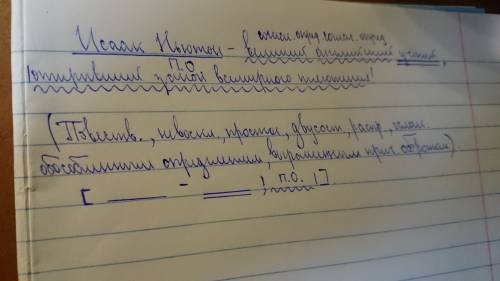 соглас. опред. соглас. опред.
Исаак Ньютон - великий английский учёный,
п.о
открывший закон всемирного тяготения!
(Повеств., невоскл, простое, двусост, распр., ослож.
обособленным определением, выраженным прич. оборотом)
[ - , п.о. ].